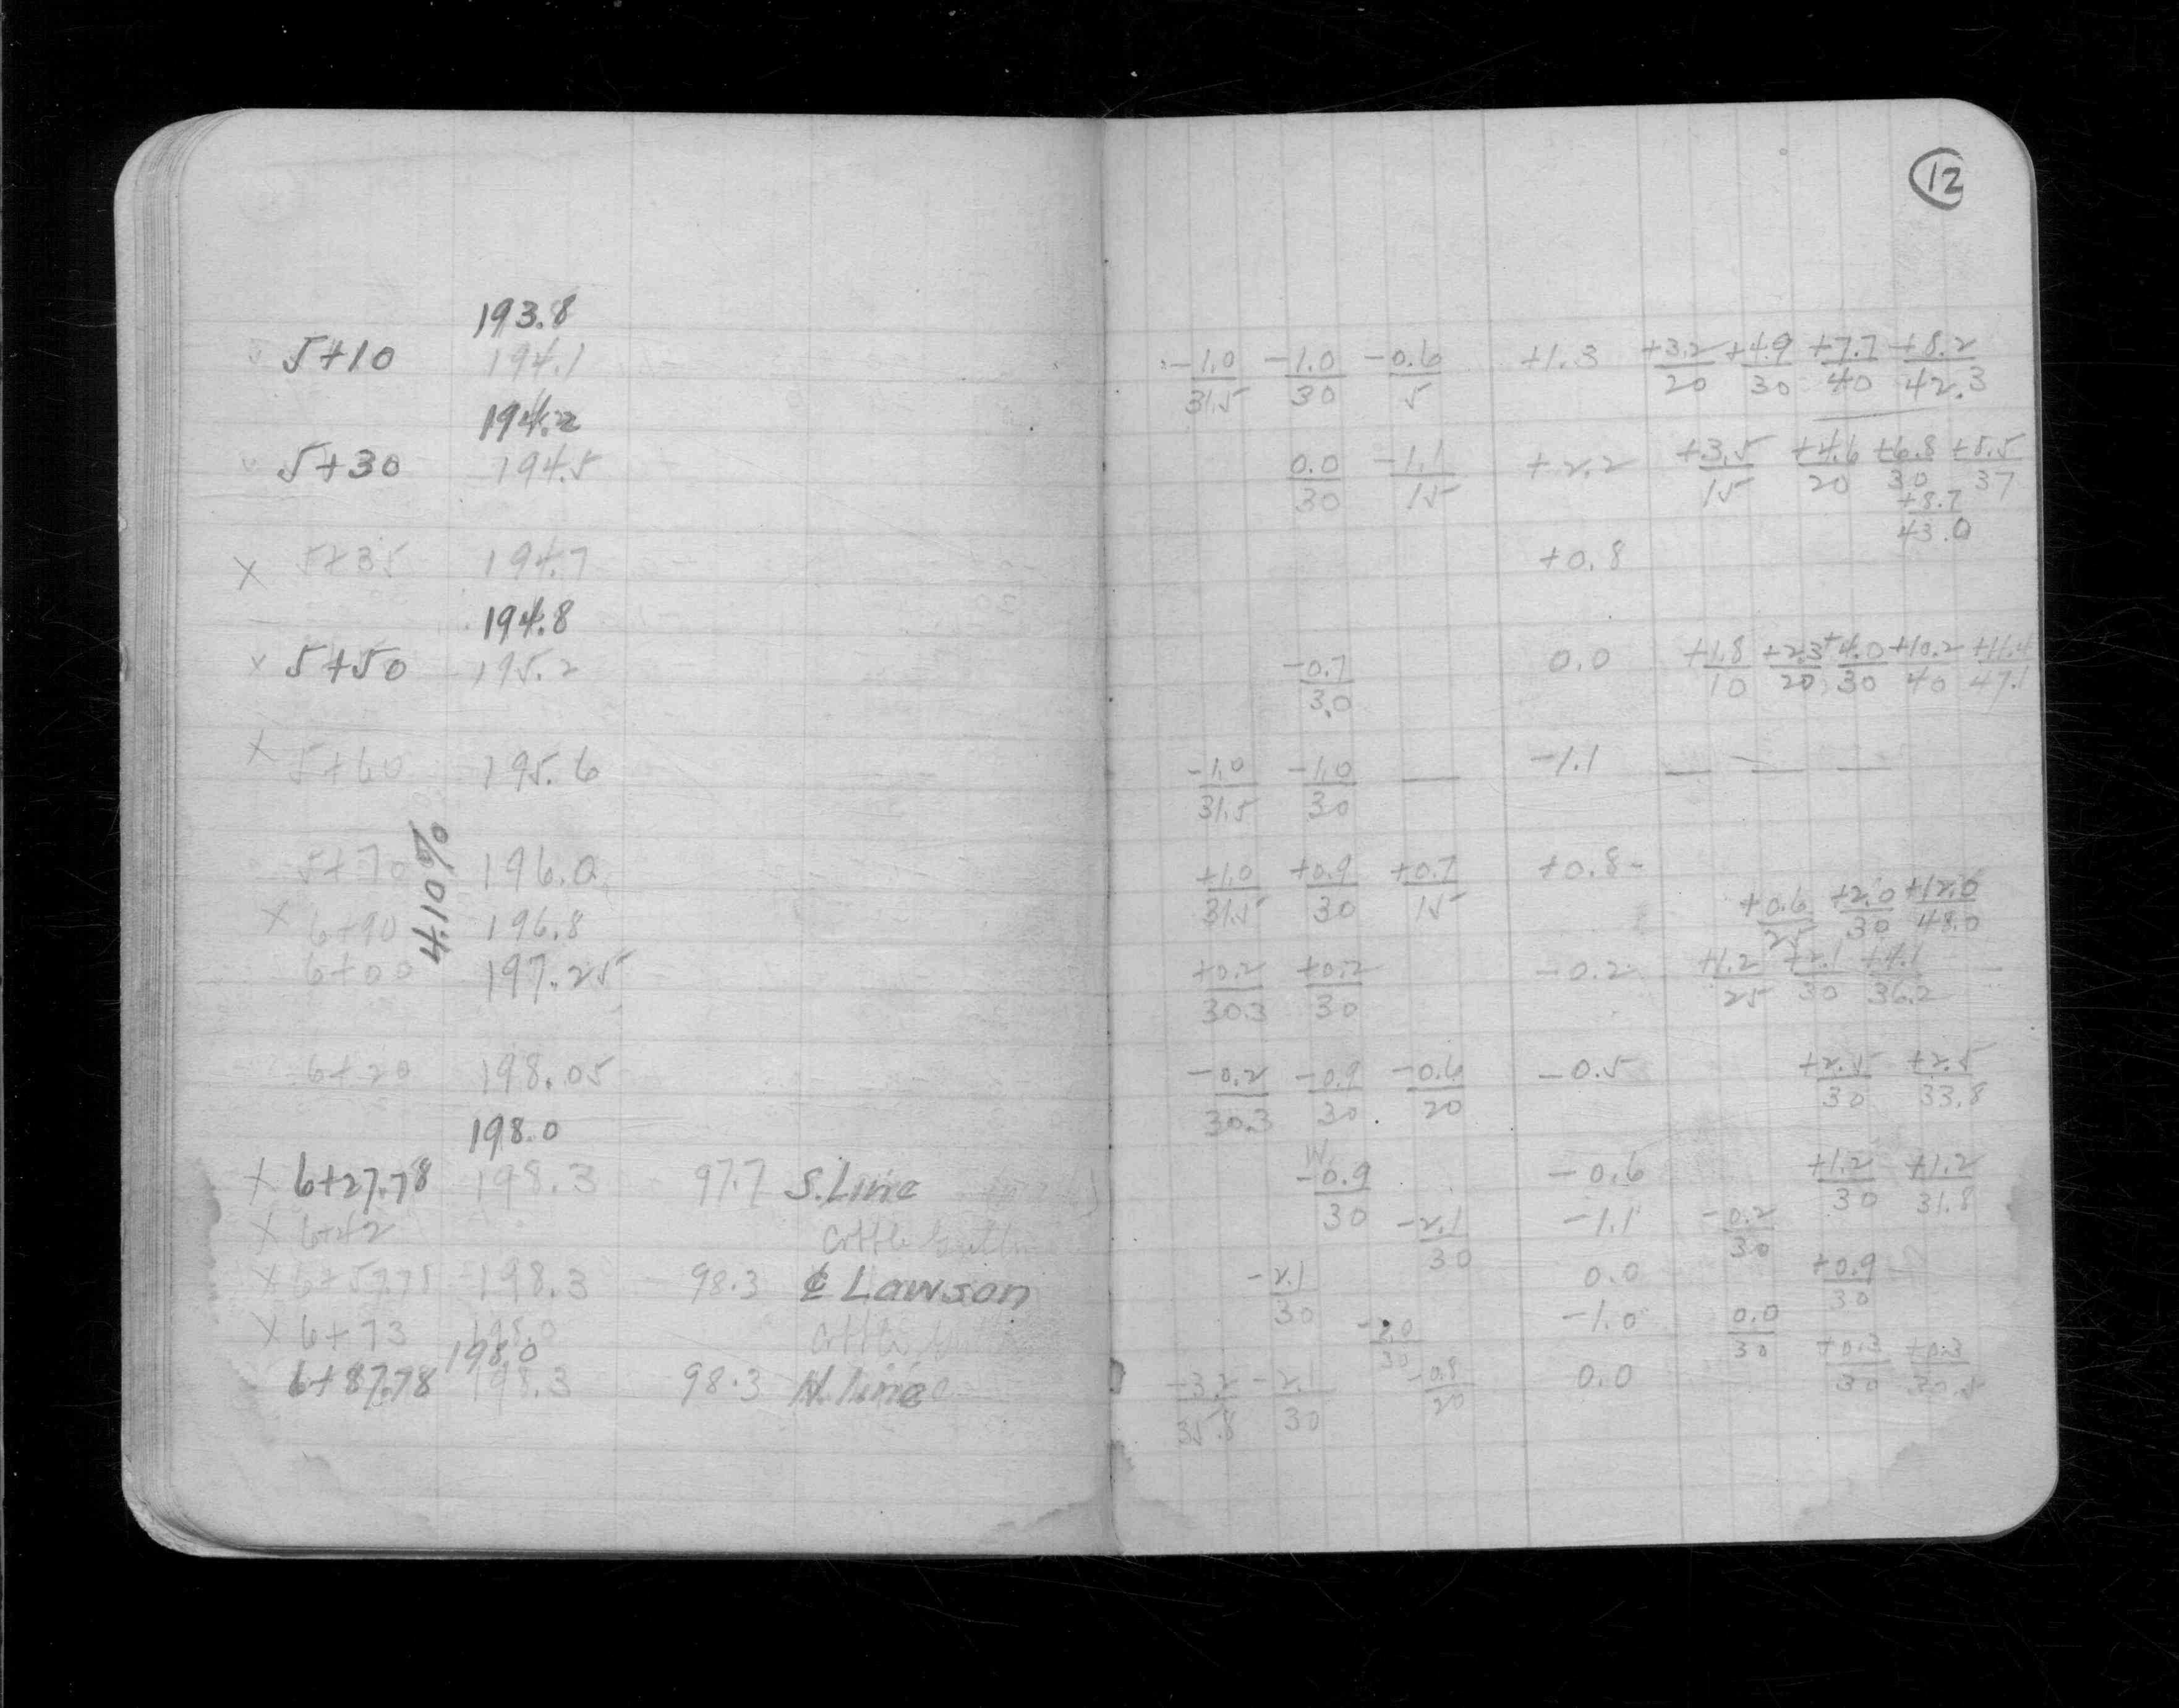 12
193.8
5+10 194.1 -1.0/31.5 -1.0/30 -0.6/5 +1.3 +3.2/20 +4.9/30 +7.7/40 +8.2/42.3
194.2
5+30 194.5 0.0/30 -1.1/15 +2.2 +3.5/15 +4.6/20 +6.8/30 +5.5/37
+8.7/43.0
X 5+35 194.7 +0.8
194.8
x 5+50 195.2 -0.7/30 0.0 +1.8/10 +2.3/20 +4.0/30 +10.2/40 +11.4/47.1
X 5+60 195.6 -1.0/31.5 -1.0/30 — -1.1 — — —
4.10%
5+70 196.0 +1.0/31.5 +0.9/30 +0.7/15 +0.8-
X 6+90 196.8 +0.6/25 +2.0/30 +12.0/48.0
6+00 197.25 +0.2/30.3 +0.2/30 -0.2 +1.2/25 +2.1/30 +4.1/36.2
6+20 198.05 -0.2/30.3 -0.9/30 -0.6/20 -0.5 +2.5/30 +2.5/33.8
198.0
X 6+27.78 198.3 97.7 S. Line -0.9/30 -0.6 +1.2/30 +1.2/31.8
X 6+42 -2.1/30 -1.1 -0.2/30
X 6+57.78 198.3 98.3 ℄ Lawson -2.1/30 0.0 +0.9/30
X 6+73 198.0 -2.0/30 -1.0 0.0/30
198.0
6+87.78 198.3 98.3 N. Line -3.2/35.8 -2.1/30 -0.8/20 0.0 +0.3/30 +0.3/30.5